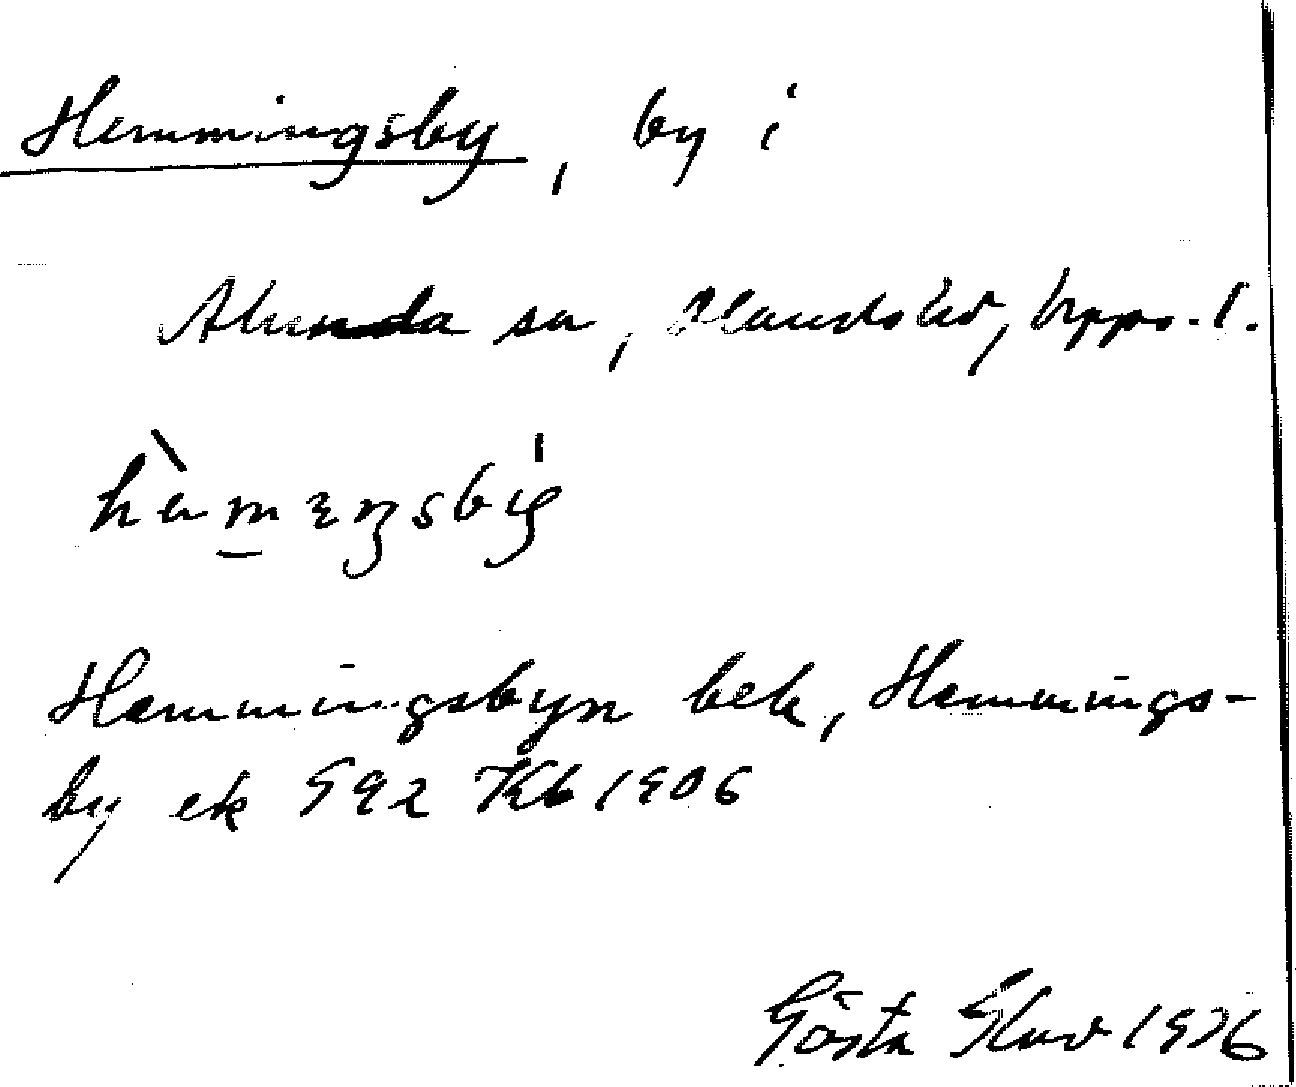 Hemmingsby, by i
Alunda sn, Olands hd, Upps. l.
Hemmingsbyn bek, Hemmings-
by ek 592 Kb 1906
Gösta 1976